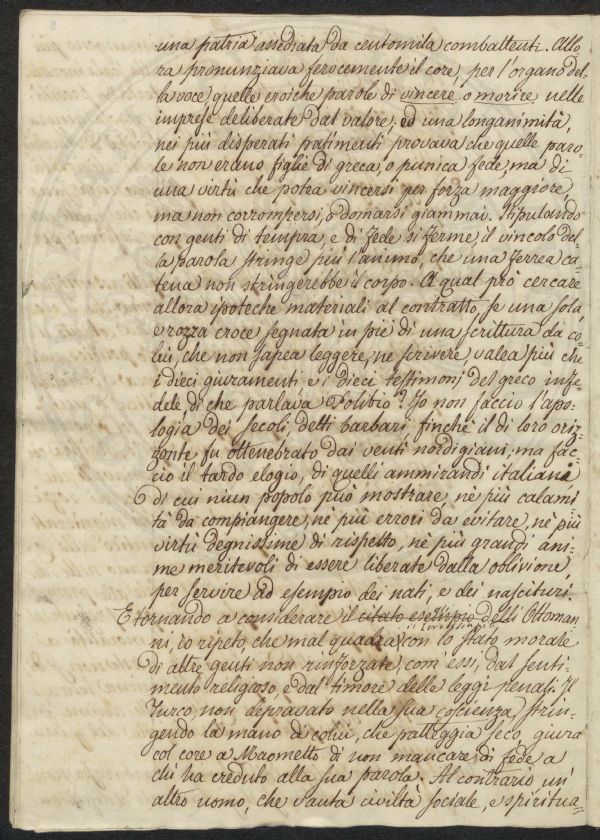 una patria assediata da centomila combattenti. Allo
ra pronunziava ferocemente il core, per l'organo del-
la voce, quelle eroiche parole di vincere o morire, nelle
imprese deliberate dal valore; ed una longanimità,
nei più disperati patimenti, provava che quelle paro-
le non erano figlie di greca, o punica fede, ma di
una virtù che potea vincersi per forza maggiore,
ma non corrompersi, o domarsi giammai. Stipulando
con genti di tempra, e di fede sì ferme, il vincolo del-
la parola stringe più l'animo, che una ferrea ca-
tena non stringerebbe il corpo. A qual prò cercare
allora ipoteche materiali al contratto, se una sola
e rozza croce segnata in piè di una scrittura da co-
lui, che non sapea leggere, ne scrivere valea più che
i dieci giuramenti e i dieci testimonj del greco infe-
dele di che parlava Polibio? Io non faccio l'apo-
logia dei secoli detti barbari finchè il di loro oriz-
zonte fu ottenebrato dai venti nordigiani; ma fac-
cio il tardo elogio, di quelli ammirandi italiani
di cui niun popolo può mostrare, nè più calami
tà da compiangere, nè più errori da evitare, nè più
virtù degnissime di rispetto, nè più grandi ani-
me meritevoli di essere liberate dalla oblivione
per servire ad esempio dei nati, e dei nascituri.
E tornando a considerare il citato esempio degli Ottoman
ni, io ripeto, che mal quadra con lo stato morale
di altre genti non rinforzate, com'essi, dal senti-
mento religioso, e dal timore delle leggi penali. Il
Turco non depravato nella sua coscienza, strin-
gendo la mano di colui, che patteggia seco, giura
col core a Maometto di non mancare di fede a
chi ha creduto alla sua parola. Al contrario un'
altro uomo, che vanta civiltà sociale, e spiritua-